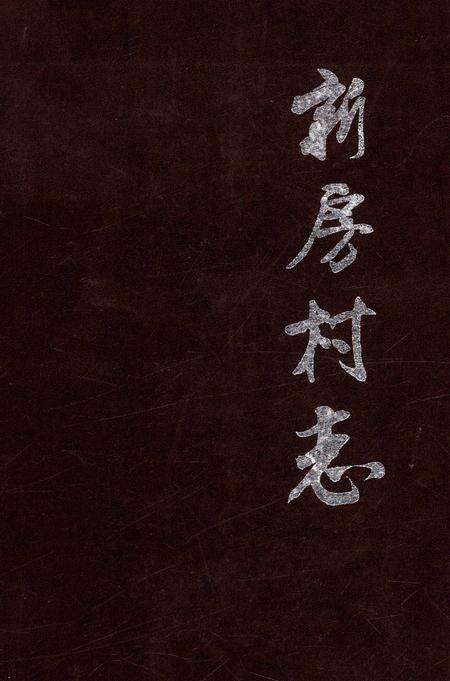 新房村志